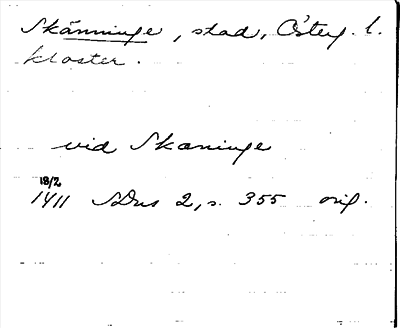 Skänninge, stad, Österg. l.
kloster.
vid Skaninge
18/2
1411 SDns 2, s. 355 orig.